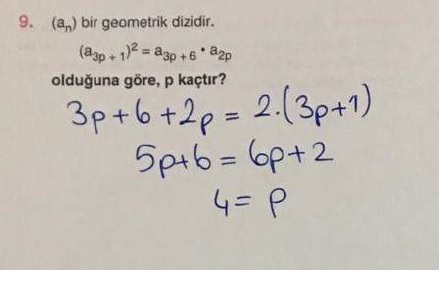 9. (aₙ) bir geometrik dizidir.
(a₃ₚ₊₁)² = a₃ₚ₊₆ · a₂ₚ
olduğuna göre, p kaçtır?
3p+6+2p = 2.(3p+1)
5p+6 = 6p+2
4 = p